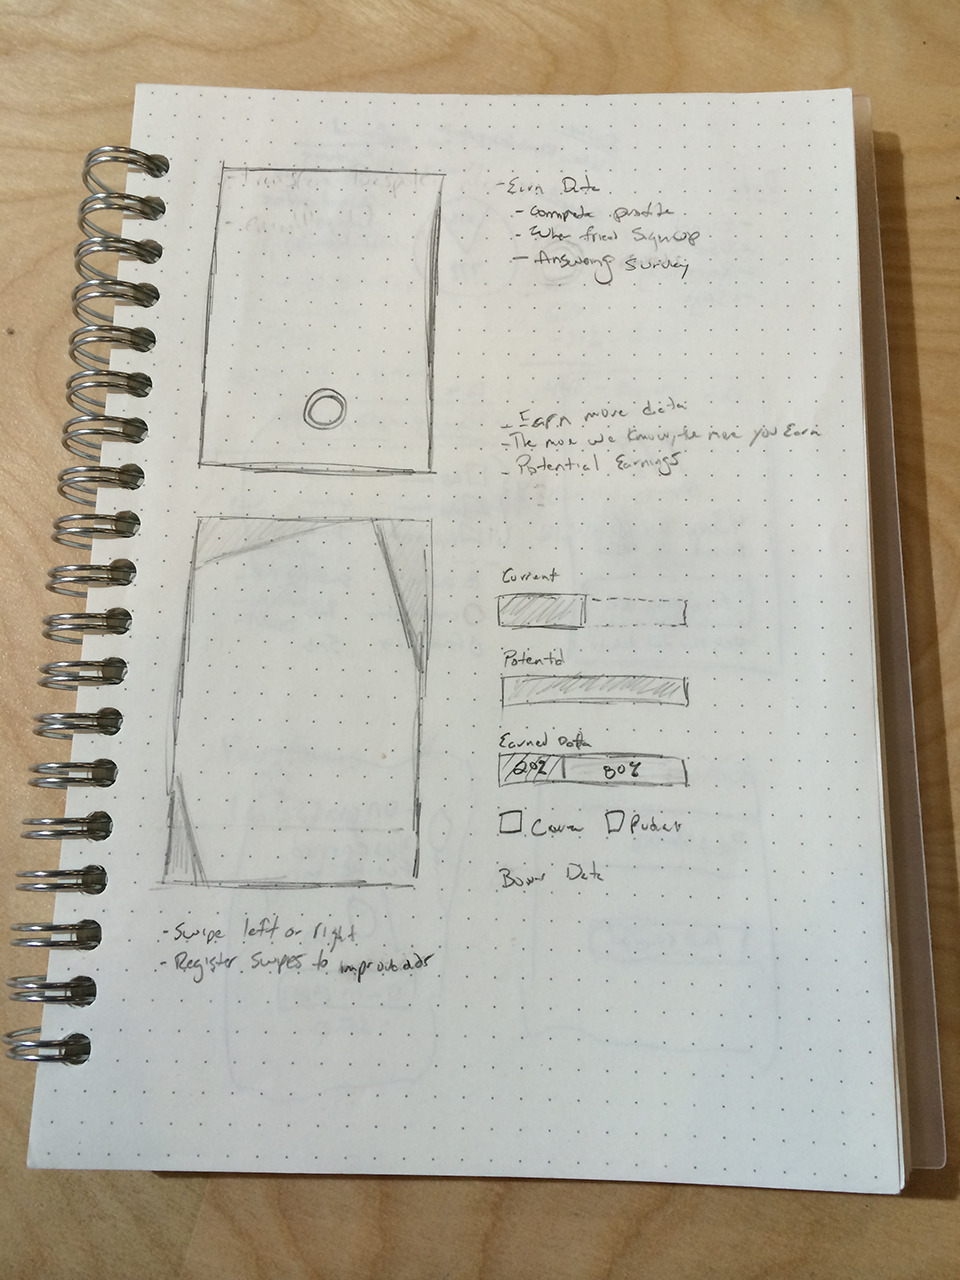 - Earn Data
- Complete profile
- When friend Signs up
- Answering Survey
- Earn more data
- The more we know, the more you Earn
- Potential Earnings
Current
Potential
Earned Data
20% 80%
Product
Data
- Swipe left or right
- Register Swipes to improve ads